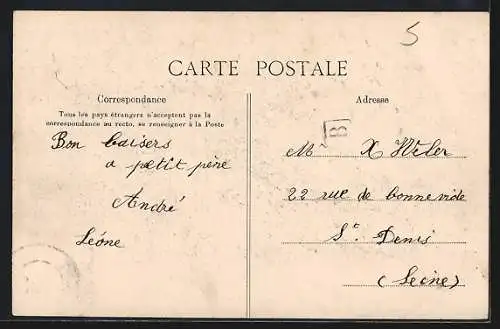 5
CARTE POSTALE
Correspondance
Tous les pays étrangers n'acceptent pas la
correspondance au recto, se renseigner à la Poste
Bon baisers
a petit père
André
Léone
Adresse
B
M X Weler
22 rue de bonnevide
St. Denis
(Seine)